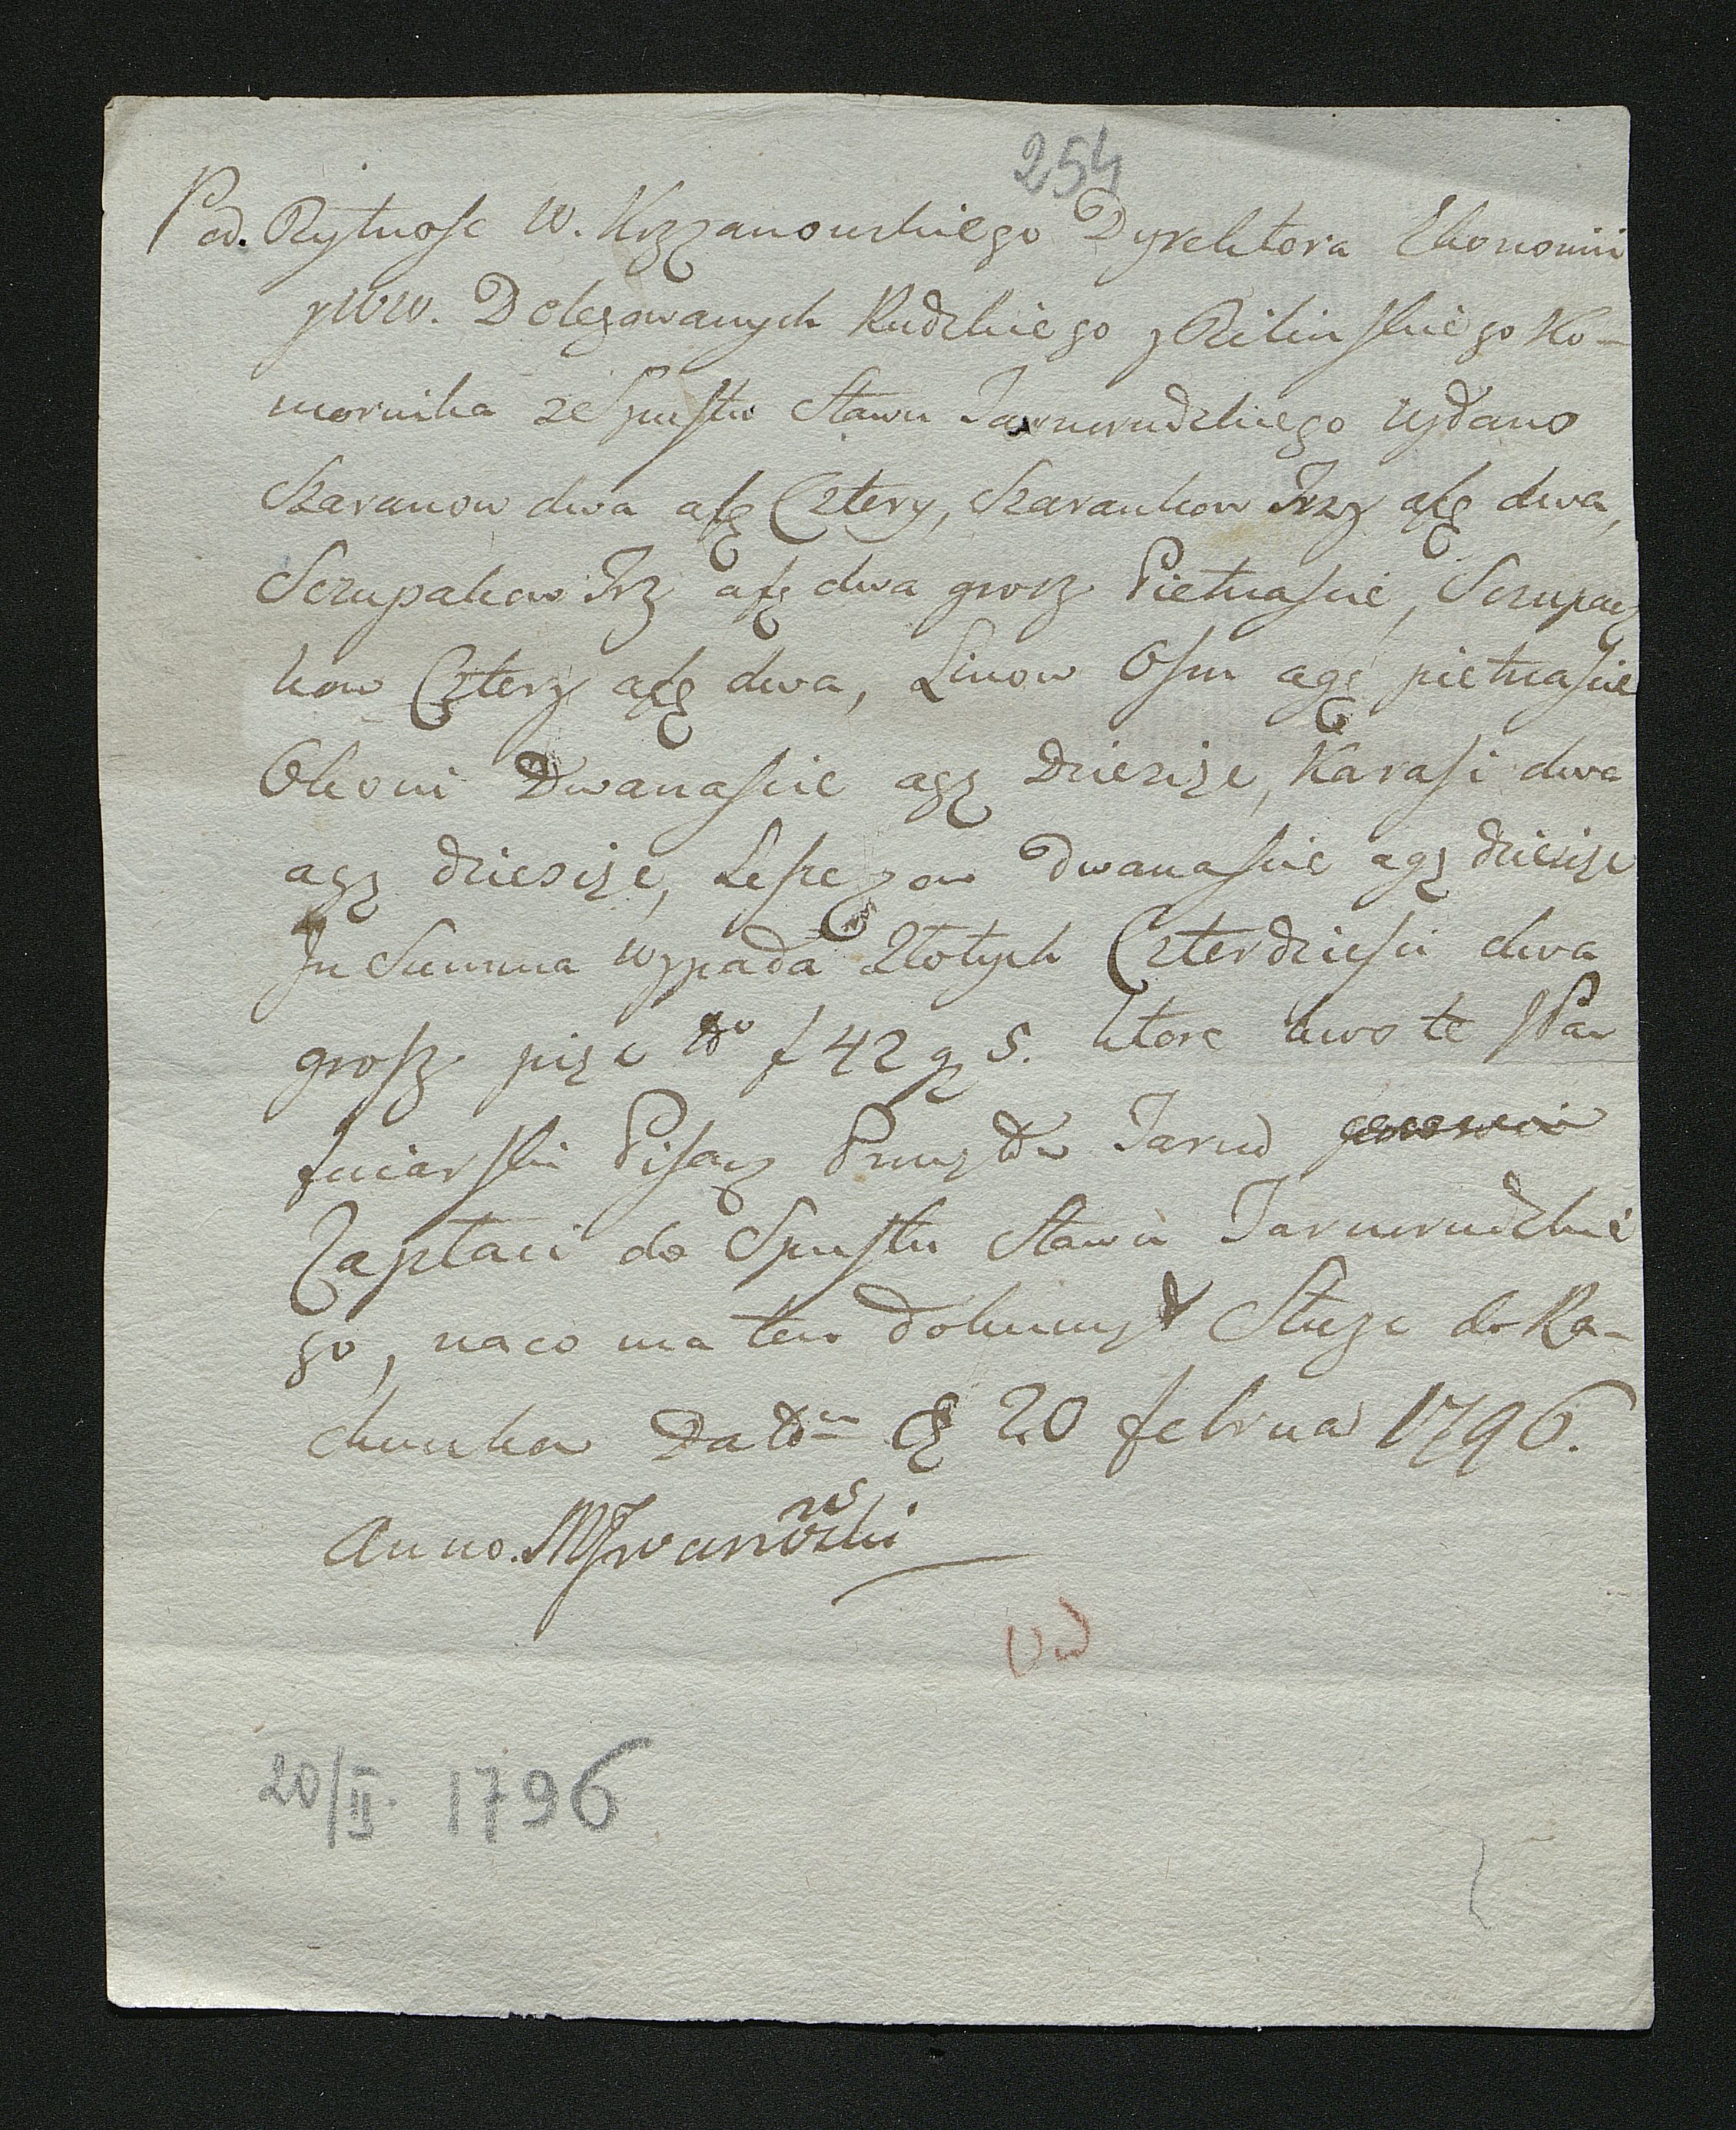 254
Pod. Bytnosc W. Krzyzanowskiego Dyrektora Ekonomii
y WW. Delegowanych Rudzkiego y Bilinskiego Ko-
mornika ze Spustu Stawu Tarnorudzkiego wydano
Szaranow dwa a fl Cztery, Szarankow Trzy a fl dwa,
Sczupakow Trzy a fl dwa grosz Pietnascie, Sczupacz
kow Cztery a fl dwa, Linow Osm a gr pietnascie
Okoni Dwanascie a gr Dziesięc, Karasi dwa
a gr dziesięc, Leszczow Dwanascie a gr dziesięc
In Summa wypada Złotych Czterdziesci dwa
grosz pięc do f 42 gr 5. ktore kwote
Pisarz Tarnd
Zapłaci do Spustu Stawu Tarnorudzkie
go, na co ma ten dokument Służyc do Ra-
chunkow Datt 20 februar 1796.
Anno. Iwanowski
20/II. 1796